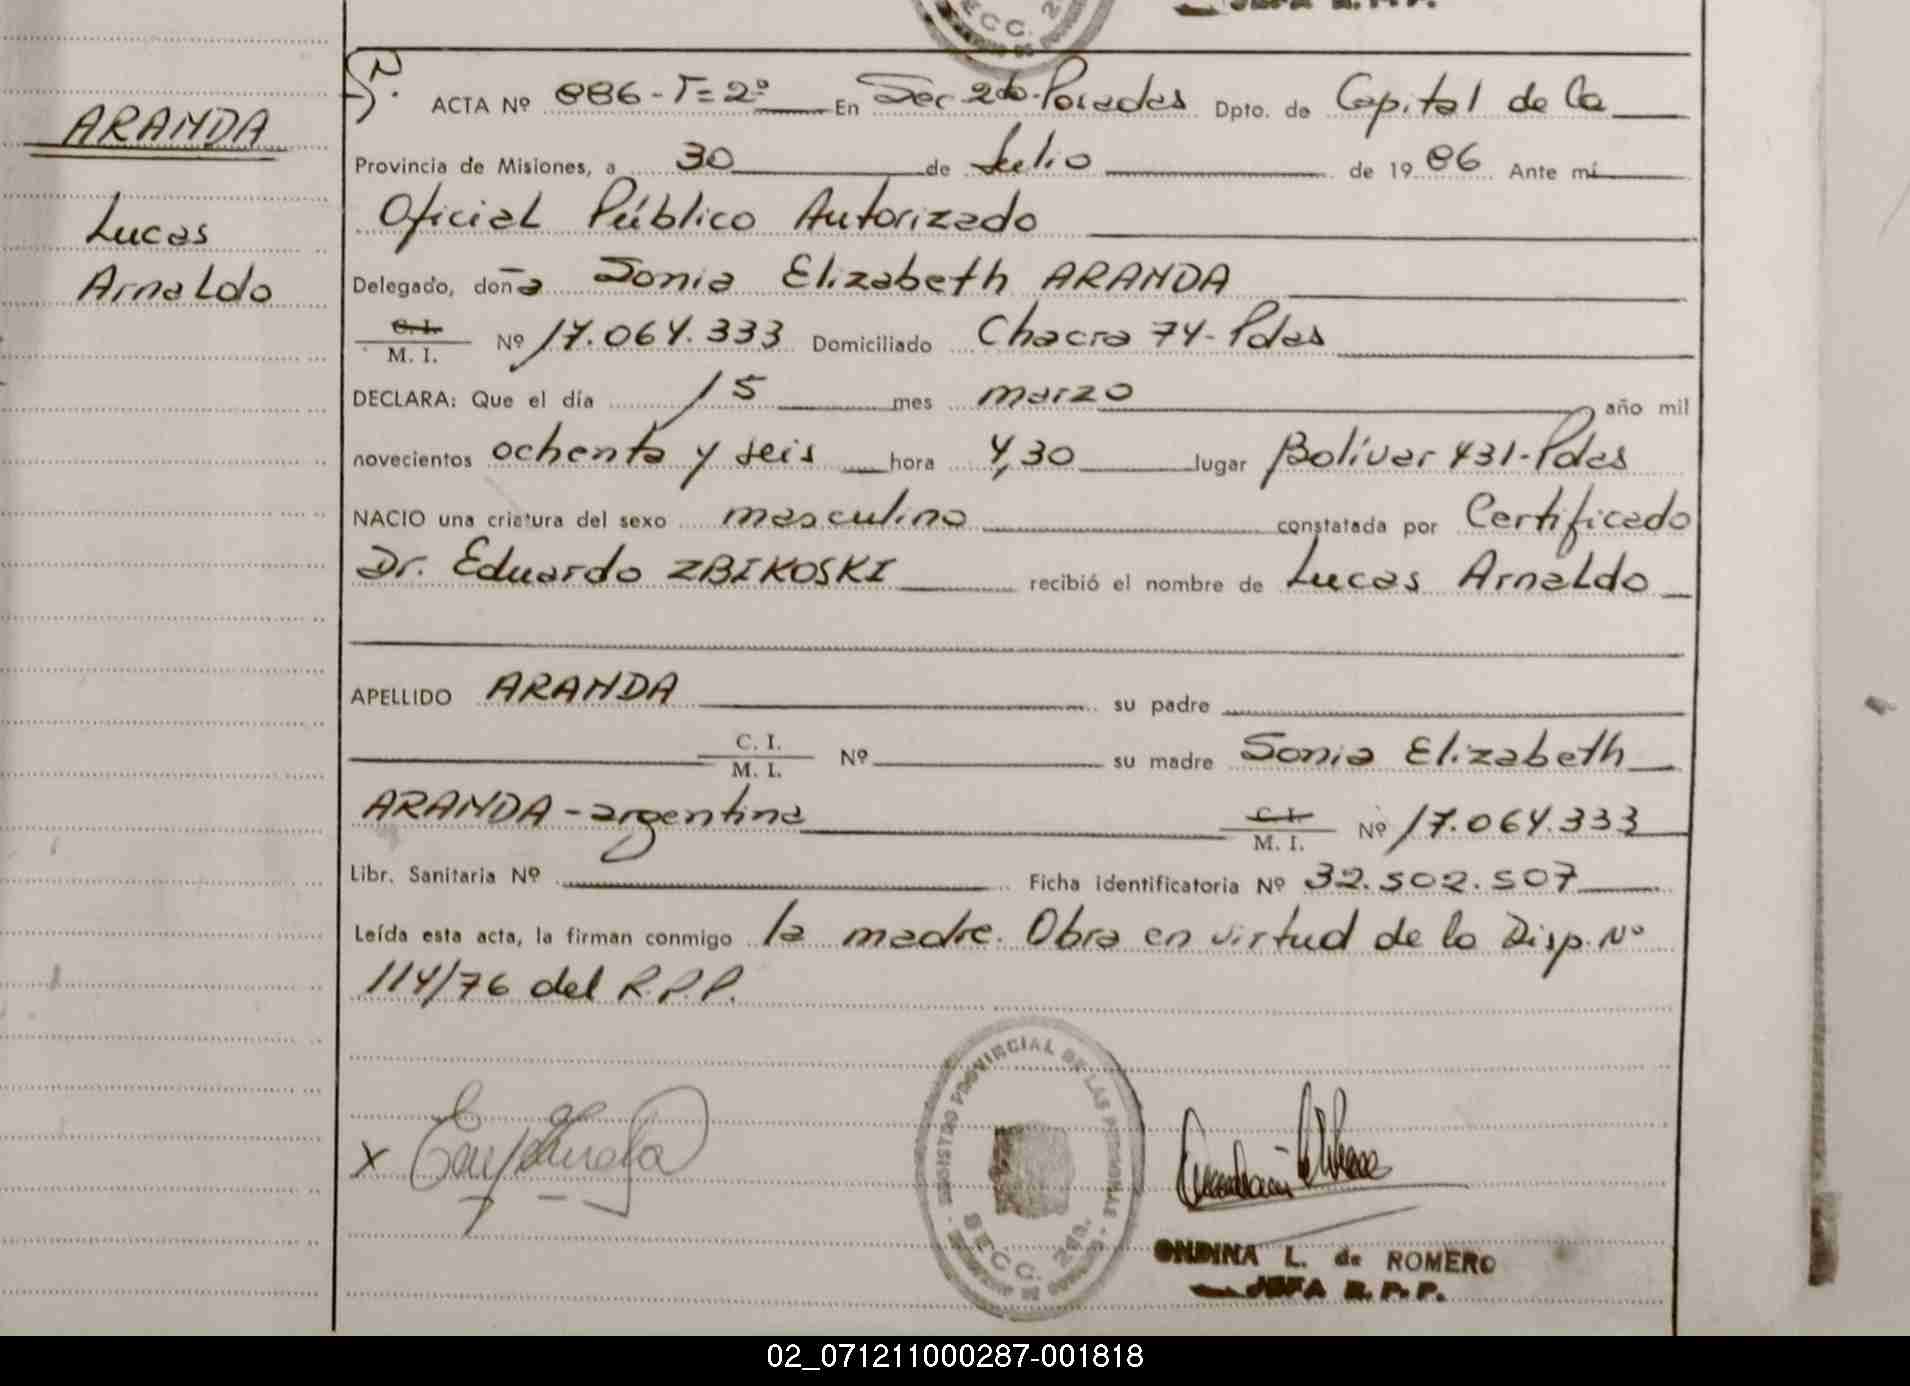 SECC. 2
JEFA R.P.P.
N.
ARANDA
Lucas
Arnaldo
ACTA Nº 886-T=2º En Sec 2da-Posadas Dpto. de Capital de la
Provincia de Misiones, a 30 de Julio de 1986 Ante mí
Oficial Público Autorizado
Delegado, doña Sonia Elizabeth ARANDA
C. I.
M. I. Nº 17.064.333 Domiciliado Chacra 74-Pdas
DECLARA: Que el día 15 mes marzo año mil
novecientos ochenta y seis hora 4,30 lugar Bolívar 431-Pdas
NACIO una criatura del sexo masculino constatada por Certificado
Dr. Eduardo ZBIKOSKI recibió el nombre de Lucas Arnaldo
APELLIDO ARANDA su padre
C. I.
M. I. Nº su madre Sonia Elizabeth
ARANDA-argentina C. I.
M. I. Nº 17.064.333
Libr. Sanitaria Nº Ficha identificatoria Nº 32.502.507
Leída esta acta, la firman conmigo la madre. Obra en virtud de la Disp. Nº
114/76 del R.P.P.
REGISTRO PROVINCIAL DE LAS PERSONAS
SECC. 2da.
X
ONDINA L. de ROMERO
JEFA R.P.P.
02_071211000287-001818